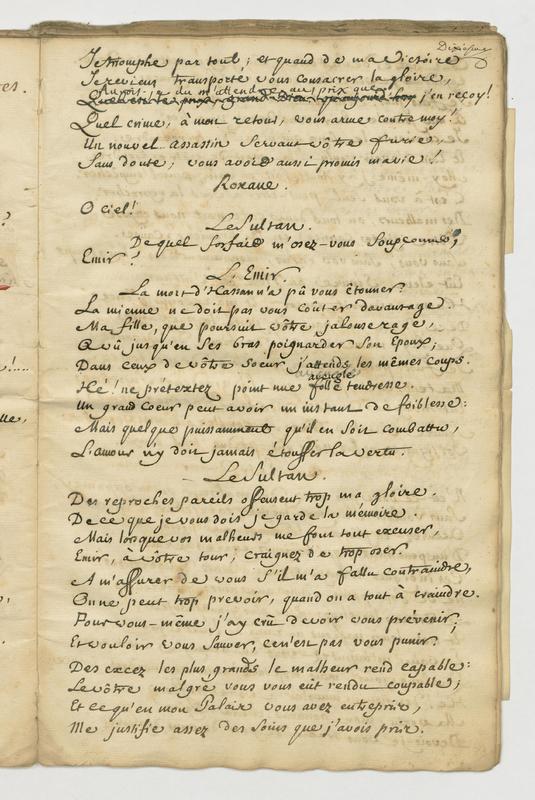 Dixiesme
Je triomphe par tout; et quand de ma Victoire
Je reviens transporté vous consacrer la gloire,
Aurois-je du m'attendre au prix que j'en reçoy!
Quel crime, à mon retour, vous arme contre moy!
Un nouvel assassin servant vôtre furie,
Sans doute, vous avoit aussi promis ma vie!
Roxane.
O ciel!
Le Sultan.
De quel forfait m'osez-vous soupçonner,
Emir?
L'Emir.
La mort d'Hassan n'a pû vous étonner.
La mienne ne doit pas vous coûter davantage.
Ma fille, que poursuit vôtre jalouse rage,
A vû jusqu'en ses bras poignarder son Epoux;
Dans ceux de vôtre soeur j'attends les mêmes coups.
Hé! ne prétextez point une folle tendresse.
aveugle
Un grand Coeur peut avoir un instant de foiblesse:
Mais quelque puissamment qu'il en soit combattu,
L'amour n'y doit jamais étouffer la vertu.
Le Sultan.
Des reproches pareils offensent trop ma gloire.
De ce que je vous dois je garde la mémoire.
Mais lorsque vos malheurs me font tout excuser,
Emir, à vôtre tour, craignez de trop oser.
A m'assurer de vous s'il m'a fallu contraindre,
On ne peut trop prevoir, quand on a tout à craindre.
Pour vous-même j'ay crû devoir vous prévenir;
Et vouloir vous sauver, ce n'est pas vous punir.
Des excez les plus grands le malheur rend capable:
Le vôtre malgré vous vous eût rendu coupable;
Et ce qu'en mon Palais vous avez entrepris,
Me justifie assez des soins que j'avois pris.